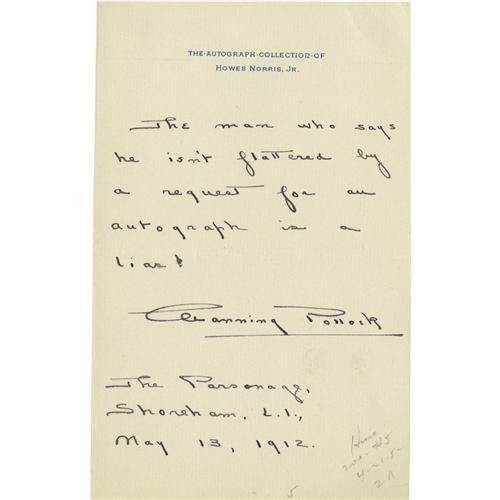 THE·AUTOGRAPH·COLLECTION·OF
HOWES NORRIS, JR.
The man who says
he isn't flattered by
a request for an
autograph is a
liar!
Channing Pollock
The Parsonage,
Shoreham, L.I.,
May 13, 1912.
5